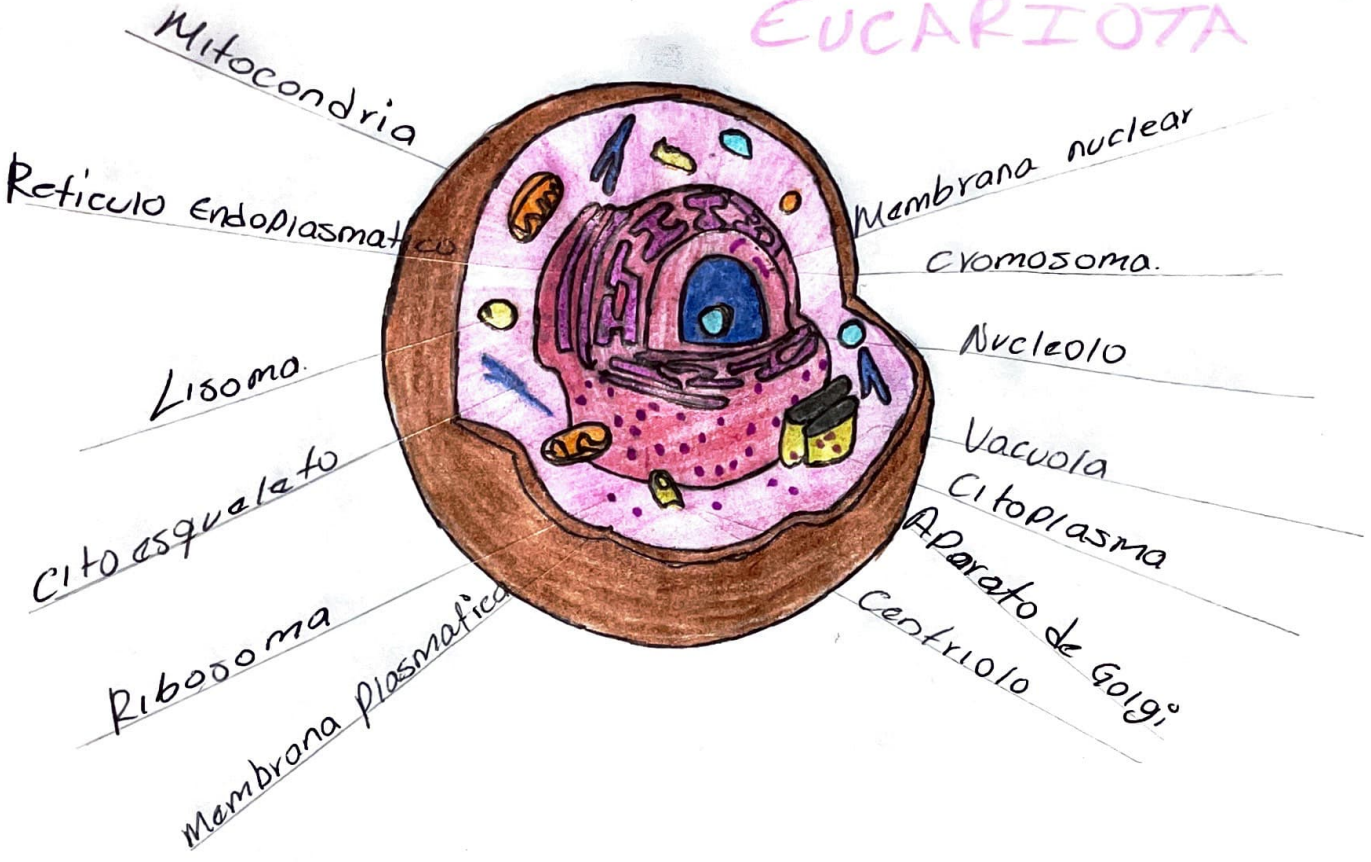 EUCARIOTA
Mitocondria
Reticulo Endoplasmatico
Lisoma.
Citoesqueleto
Ribosoma
Membrana Plasmatica
Membrana nuclear
cromosoma.
Nucleolo
Vacuola
Citoplasma
Aparato de Golgi
Centriolo